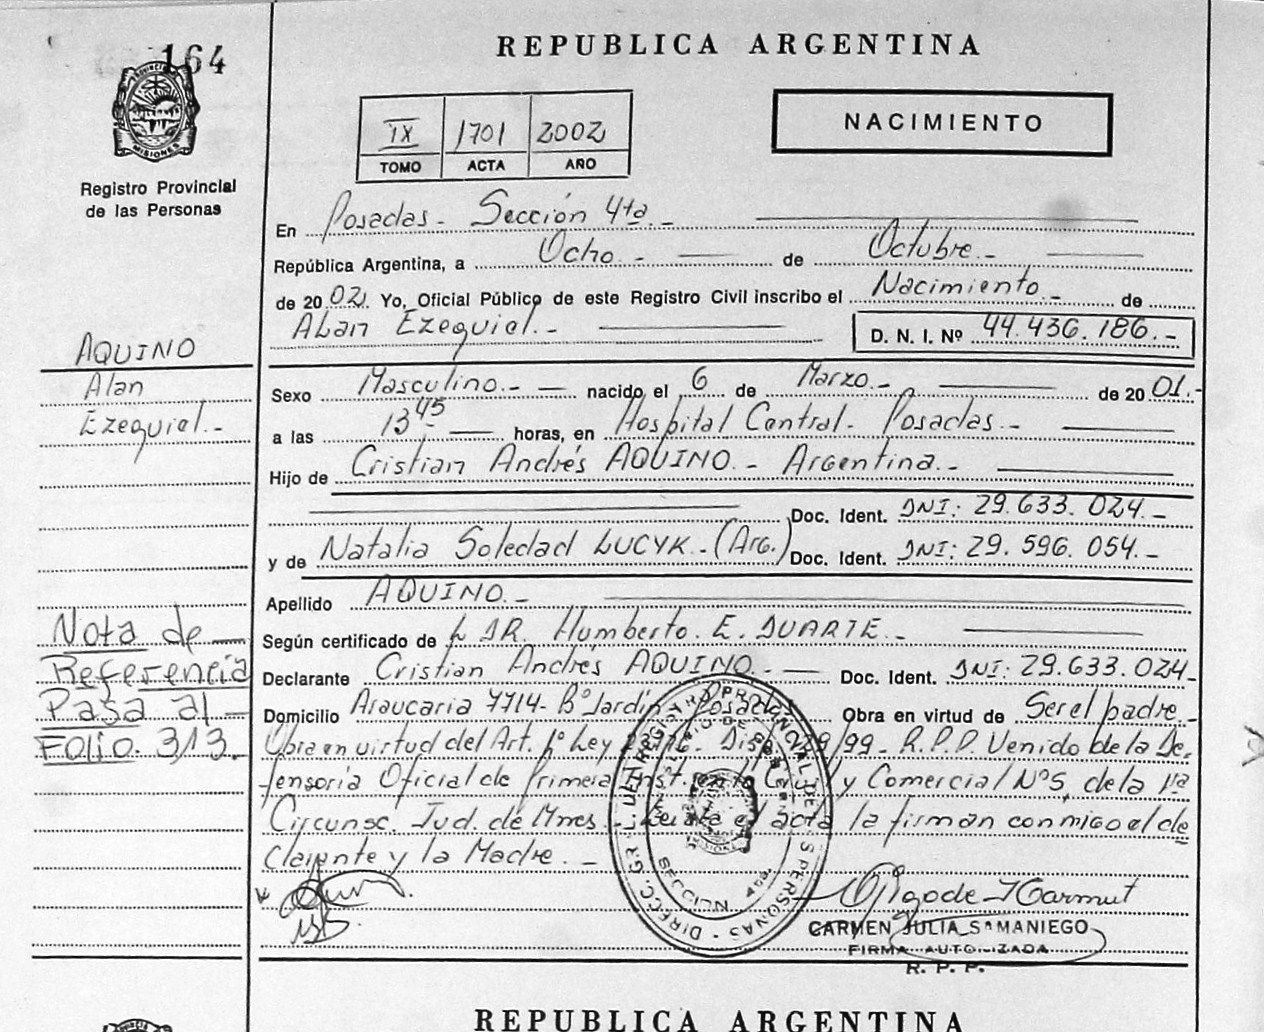 164
PROVINCIA
MISIONES
Registro Provincial
de las Personas
REPUBLICA ARGENTINA
IX 1701 2002
TOMO ACTA AÑO
NACIMIENTO
En Posadas - Sección 4ta.-
República Argentina, a Ocho.- de Octubre.-
de 2002. Yo, Oficial Público de este Registro Civil inscribo el Nacimiento.- de
Alan Ezequiel.-
D. N. I. Nº 44.436.186.-
AQUINO
Alan
Ezequiel.-
Sexo Masculino.- nacido el 6 de Marzo.- de 2001.-
a las 13 45 horas, en Hospital Central - Posadas.-
Hijo de Cristian Andrés AQUINO.- Argentina.-
Doc. Ident. DNI: 29.633.024.-
y de Natalia Soledad LUCYK.- (Arg.) Doc. Ident. DNI: 29.596.054.-
Apellido AQUINO.-
Según certificado de DR. Humberto. E. DUARTE.-
Declarante Cristian Andrés AQUINO.- Doc. Ident. DNI: 29.633.024-
Domicilio Araucaria 7714- Bº Jardín Posadas Obra en virtud de Ser el padre.-
Obra en virtud del Art. Ley /99- R.P.P. Venido de la De-
fensoría Oficial de Primera Inst. y Comercial Nº5, de la 1ª
Circunsc. Jud. de Mnes.- Leída el acta la firman conmigo el de
clarante y la Madre.-
Nota de
Referencia
Pasa al -
Folio. 313.
DIREC. GRAL. DEL REGISTRO PROVINCIAL DE LAS PERSONAS
SECCION 4ta.
CARMEN JULIA SAMANIEGO
FIRMA AUTORIZADA
R. P. P.
REPUBLICA ARGENTINA